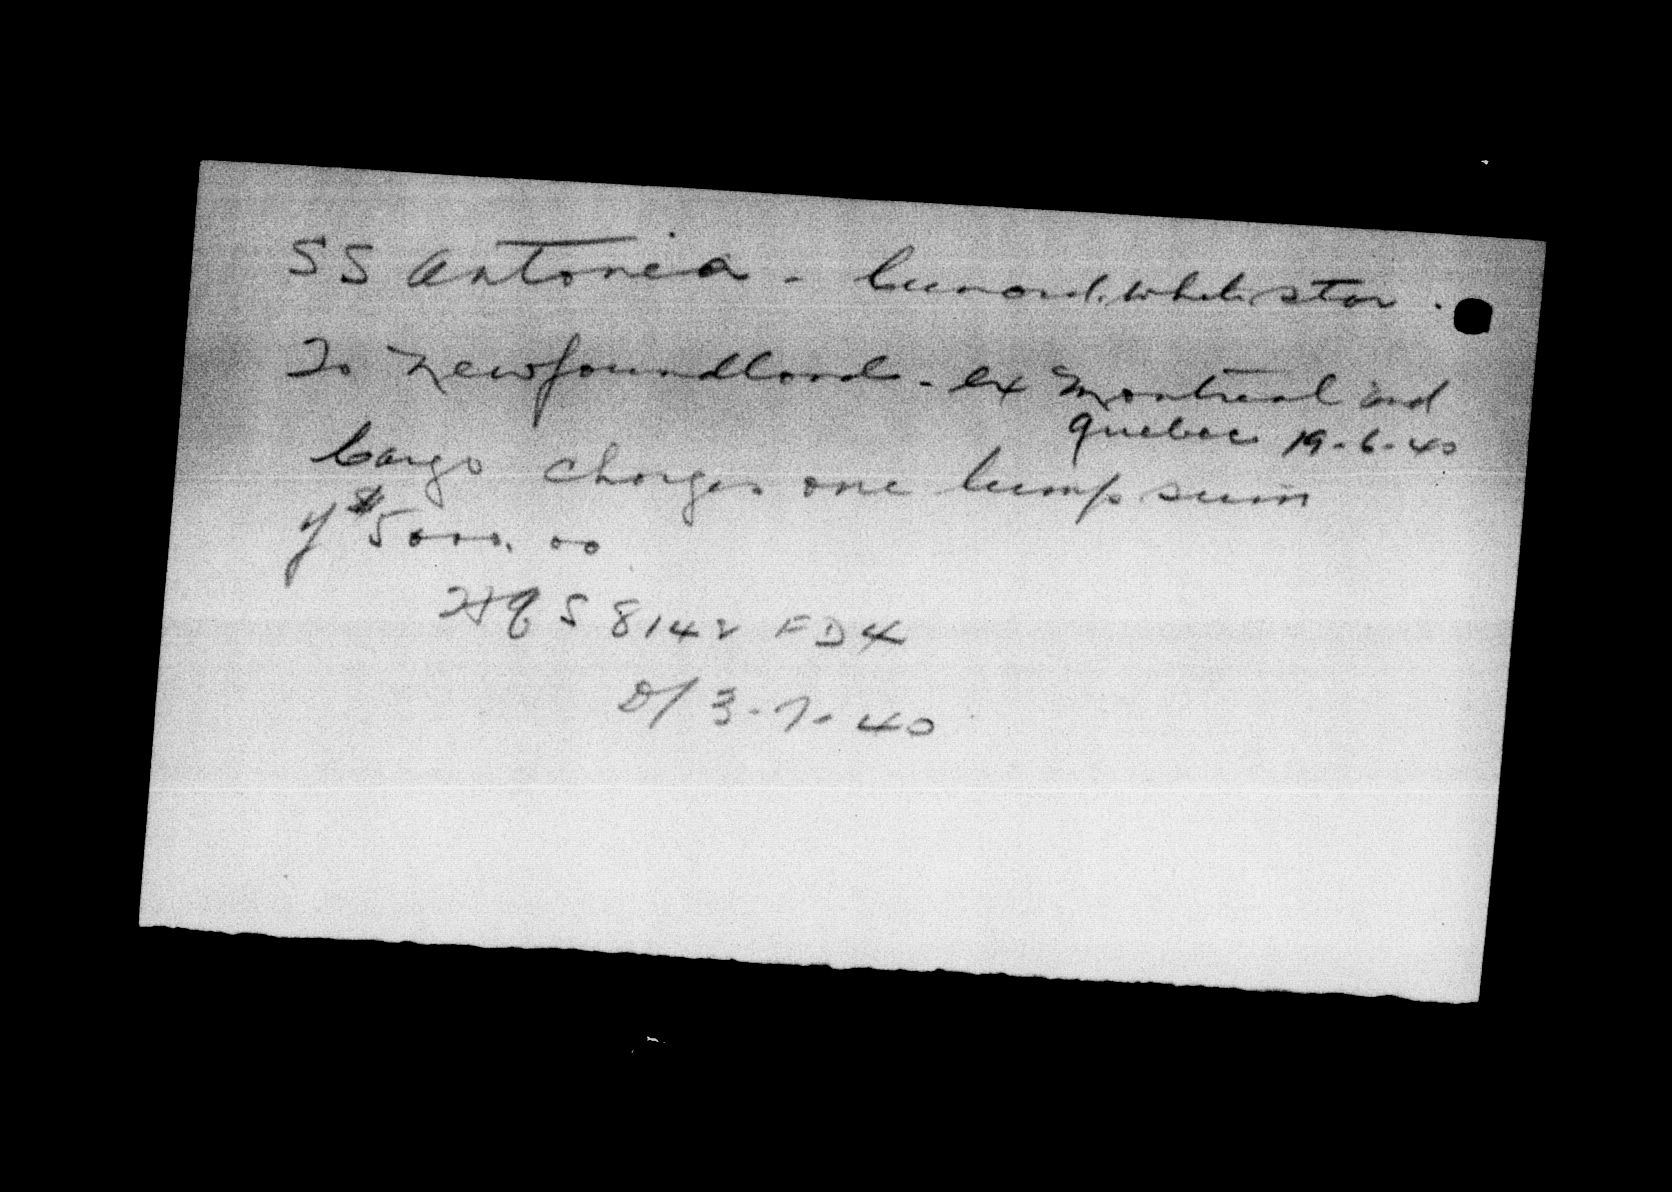 SS Antonia - Cunard. White Star.
To Newfoundland - ex Montreal and
Quebec 19-6-40
Cargo charges one lump sum
of $5000.00
HQS 8142 FD4
D/ 3-7-40